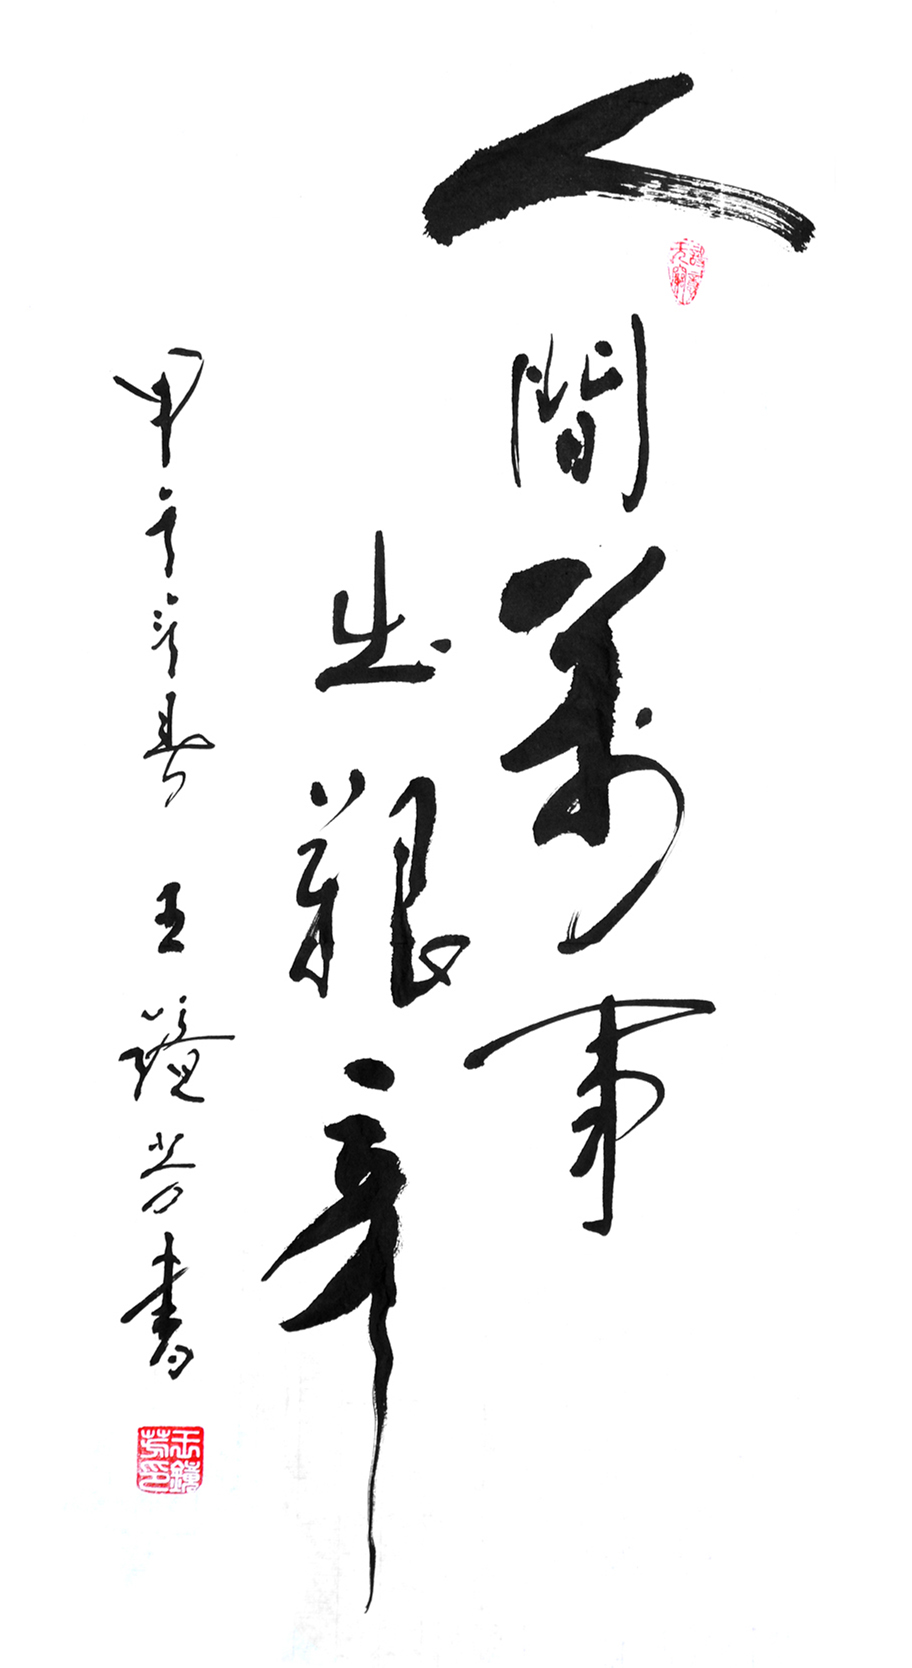 人間萬事
出艱辛
甲午春 王鏡芳書
王鏡芳印